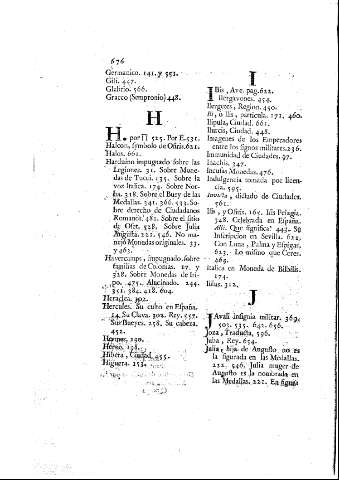 676
Germanico. 141. y 551.
Gili. 447.
Glabrio. 566.
Graco (Sempronio) 448.
H
H. por Π 525. Por E. 531.
Halcon, symbolo de Osiris. 621.
Halos. 661.
Harduino impugnado sobre las
Legiones. 31. Sobre Mone-
das de Tucci. 135. Sobre la
voz Italica. 174. Sobre Nor-
ba. 318. Sobre el Buey de las
Medallas. 341. 366. 532. So-
bre derecho de Ciudadanos
Romanos. 481. Sobre el sitio
de 528. Sobre Julia
Augusta. 222. 546. No ma-
nejó Monedas originales. 33.
y 463.
Havercamps, impugnado sobre
familias de Colonias. 27. y
328. Sobre Monedas de
475. Alucinado. 244.
351. 384. 418. 604.
Heraclea. 302.
Hercules. Su culto en España.
54. Su Clava. 302. Rey. 557.
Sus Bueyes. 258. Su cabeza.
452.
190.
198.
Hibera, Ciudad. 455.
Higuera. 253.
I
IBis, Ave. pag. 622.
Ilergavones. 454.
Ilergetes, Region. 450.
Ili, o Ilis, particula. 172. 460.
Ilipula, Ciudad. 661.
Ilurcis, Ciudad. 448.
Imagenes de los Emperadores
entre los signos militares. 236.
Immunidad de Ciudades. 97.
Inachis. 347.
Incusas Monedas. 476.
Indulgencia tomada por licen-
cia. 595.
dictado de Ciudades.
561.
Isis, y Osiris. 161. Isis Pelagia.
348. Celebrada en España.
Alli. Que significa? 443. Su
Inscripcion en Sevilla. 624.
Con Luna, Palma y Espigas.
623. Lo mismo que Ceres.
465.
Italica en Moneda de Bilbilis.
174.
312.
J
JAvali insignia militar. 369.
503. 535. 642. 656.
Joza, Traducta. 596.
Juba, Rey. 654.
Julia, hija de Augusto no es
la figurada en las Medallas.
222. 546. Julia muger de
Augusto es la nombrada en
las Medallas. 222. En figura